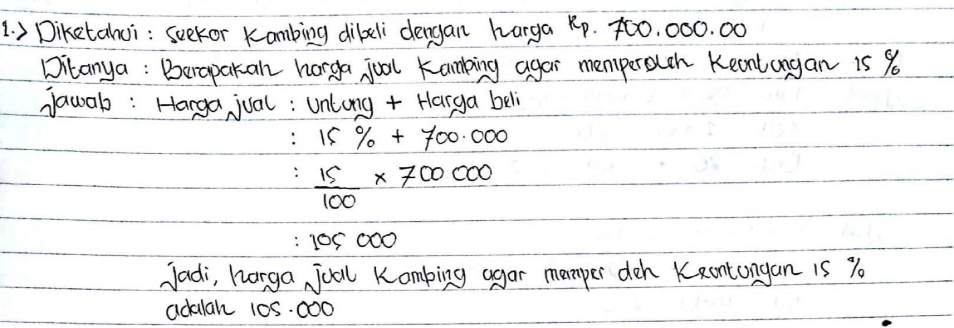 1.> Diketahui : Seekor Kambing dibeli dengan harga Rp. 700.000.00
Ditanya : Berapakah harga jual Kambing agar memperoleh Keuntungan 15 %
Jawab : Harga jual : Untung + Harga beli
: 15 % + 700.000
: 15/100 x 700 000
: 105 000
Jadi, harga jual Kambing agar memper oleh Keuntungan 15 %
adalah 105.000